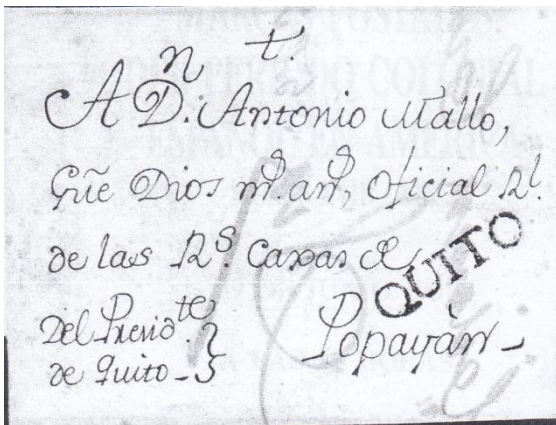 t.
A Dn. Antonio Mallo,
Gũe Dios ms. ans, Oficial Rl.
de las Rs. Caxas de
QUITO
Del Presidte.
de Quito -
Popayàn -